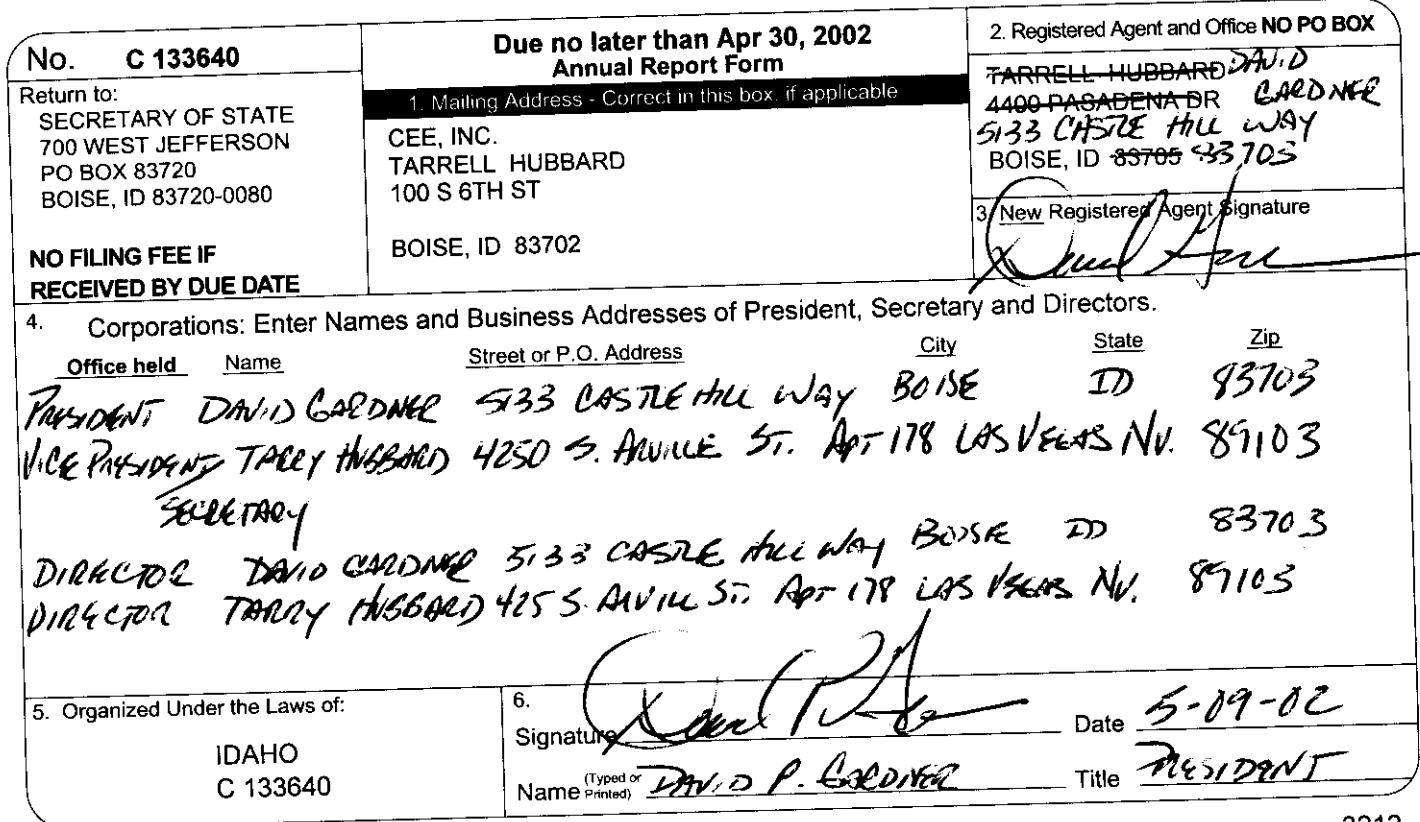 No. C 133640
Return to:
SECRETARY OF STATE
700 WEST JEFFERSON
PO BOX 83720
BOISE, ID 83720-0080
NO FILING FEE IF
RECEIVED BY DUE DATE
Due no later than Apr 30, 2002
Annual Report Form
1. Mailing Address - Correct in this box, if applicable
CEE, INC.
TARRELL HUBBARD
100 S 6TH ST
BOISE, ID 83702
2. Registered Agent and Office NO PO BOX
TARRELL HUBBARD DAVID
4400 PASADENA DR GARDNER
5133 CASTLE HILL WAY
BOISE, ID 83705 83703
3. New Registered Agent Signature
4. Corporations: Enter Names and Business Addresses of President, Secretary and Directors.
Office held Name Street or P.O. Address City State Zip
PRESIDENT DAVID GARDNER 5133 CASTLE HILL WAY BOISE ID 83703
VICE PRESIDENT TARRY HUBBARD 4250 S. ARVILLE ST. APT 178 LAS VEGAS NV. 89103
SECRETARY
DIRECTOR DAVID GARDNER 5133 CASTLE HILL WAY BOISE ID 83703
DIRECTOR TARRY HUBBARD 425 S. ARVILL ST. APT 178 LAS VEGAS NV. 89103
5. Organized Under the Laws of:
IDAHO
C 133640
6.
Signature Date 5-09-02
Name (Typed or Printed) DAVID P. GARDNER Title PRESIDENT